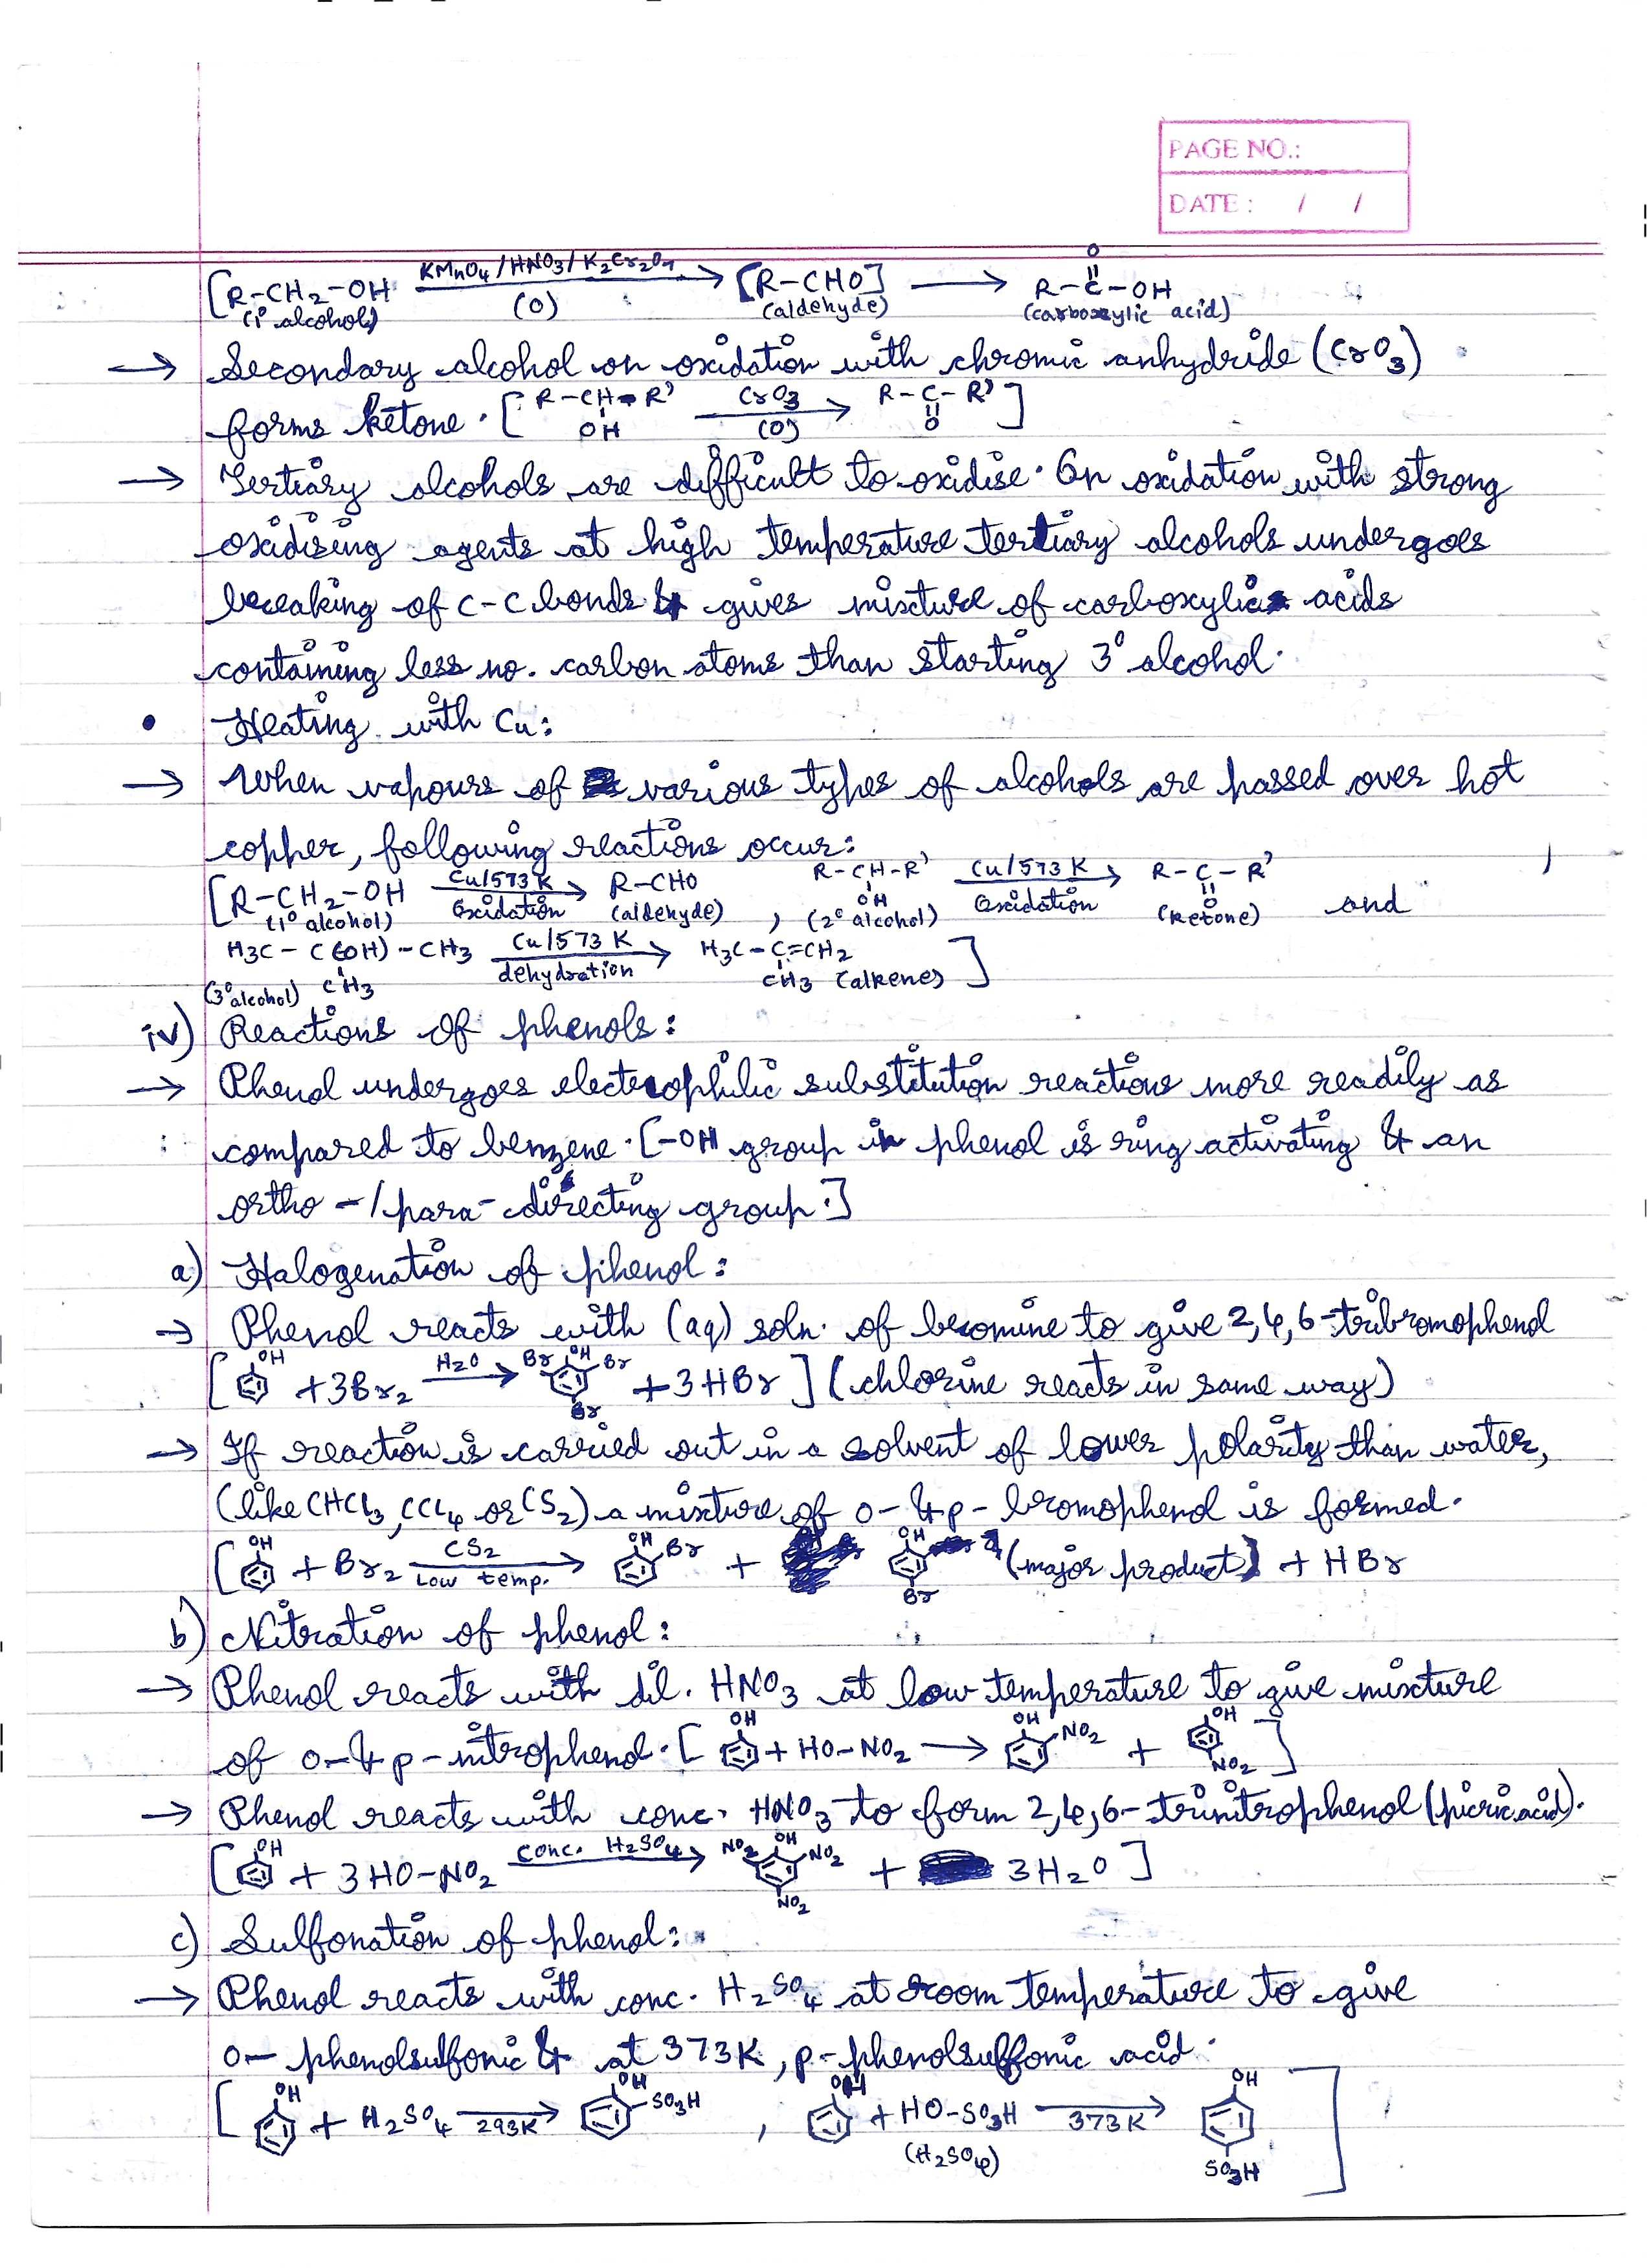 PAGE NO.:
DATE : / /
[R-CH₂-OH KMnO₄/HNO₃/K₂Cr₂O₇ (O) → [R-CHO] → R-C-OH
O
(1° alcohols) (aldehyde) (carboxylic acid)
→ Secondary alcohol on oxidation with chromic anhydride (CrO₃)
forms ketone. [R-CH-R' CrO₃ (O) → R-C-R']
OH O
→ Tertiary alcohols are difficult to oxidise. On oxidation with strong
oxidising agents at high temperature tertiary alcohols undergoes
breaking of C-C bonds & gives mixture of carboxylic acids
containing less no. carbon atoms than starting 3° alcohol.
• Heating with Cu:
→ When vapours of various types of alcohols are passed over hot
copper, following reactions occur:
[R-CH₂-OH Cu/573 K Oxidation → R-CHO , R-CH-R' Cu/573 K Oxidation → R-C-R' and
OH O
(1° alcohol) (aldehyde) (2° alcohol) (Ketone)
H₃C-C(OH)-CH₃ Cu/573 K dehydration → H₃C-C=CH₂ ]
(3° alcohol) CH₃ CH₃ (alkenes)
iv) Reactions of phenols:
→ Phenol undergoes electrophilic substitution reactions more readily as
compared to benzene. [-OH group in phenol is ring activating & an
ortho-/para-directing group.]
a) Halogenation of phenol:
→ Phenol reacts with (aq) soln. of bromine to give 2,4,6-tribromophenol
[ OH + 3Br₂ H₂O → Br OH Br Br + 3HBr ] (chlorine reacts in same way)
→ If reaction is carried out in a solvent of lower polarity than water,
(like CHCl₃, CCl₄ or CS₂) a mixture of o- & p- bromophenol is formed.
[ OH + Br₂ CS₂ Low temp. → OH Br + OH Br (major product) + HBr
b) Nitration of phenol:
→ Phenol reacts with dil. HNO₃ at low temperature to give mixture
of o- & p-nitrophenol. [ OH + HO-NO₂ → OH NO₂ + OH NO₂ ]
→ Phenol reacts with conc. HNO₃ to form 2,4,6-trinitrophenol (picric acid).
[ OH + 3HO-NO₂ conc. H₂SO₄ → NO₂ OH NO₂ NO₂ + 3H₂O ]
c) Sulfonation of phenol:
→ Phenol reacts with conc. H₂SO₄ at room temperature to give
o- phenolsulfonic & at 373K, p-phenolsulfonic acid.
[ OH + H₂SO₄ 293K → OH SO₃H , OH + HO-SO₃H 373K → OH SO₃H ]
(H₂SO₄)